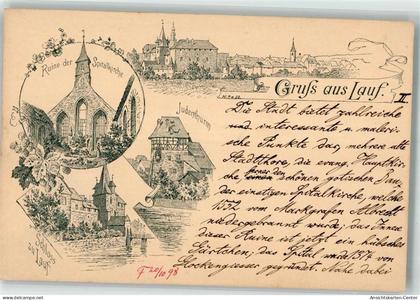 Ruine der Spitalkirche
Gruß aus Lauf.
II
Judenthurm
Schloss zu Lauf
Die Stadt bietet zahlreiche
und interessante u. maleri-
sche Punkte dar, mehrere alte
Stadtthore, die evang. Hauptkir-
che, schönen gotischen
der einstigen Spitalkirche, welche
1552 vom Markgrafen Albrecht
niedergebrannt wurde; das Innere
dieser Ruine ist jetzt ein hübsches
Gärtchen; das Spital wurde 1374 von
Glockengiesser gegründet. Nahe dabei
20/10 98
www.ansichtskarten-center.de